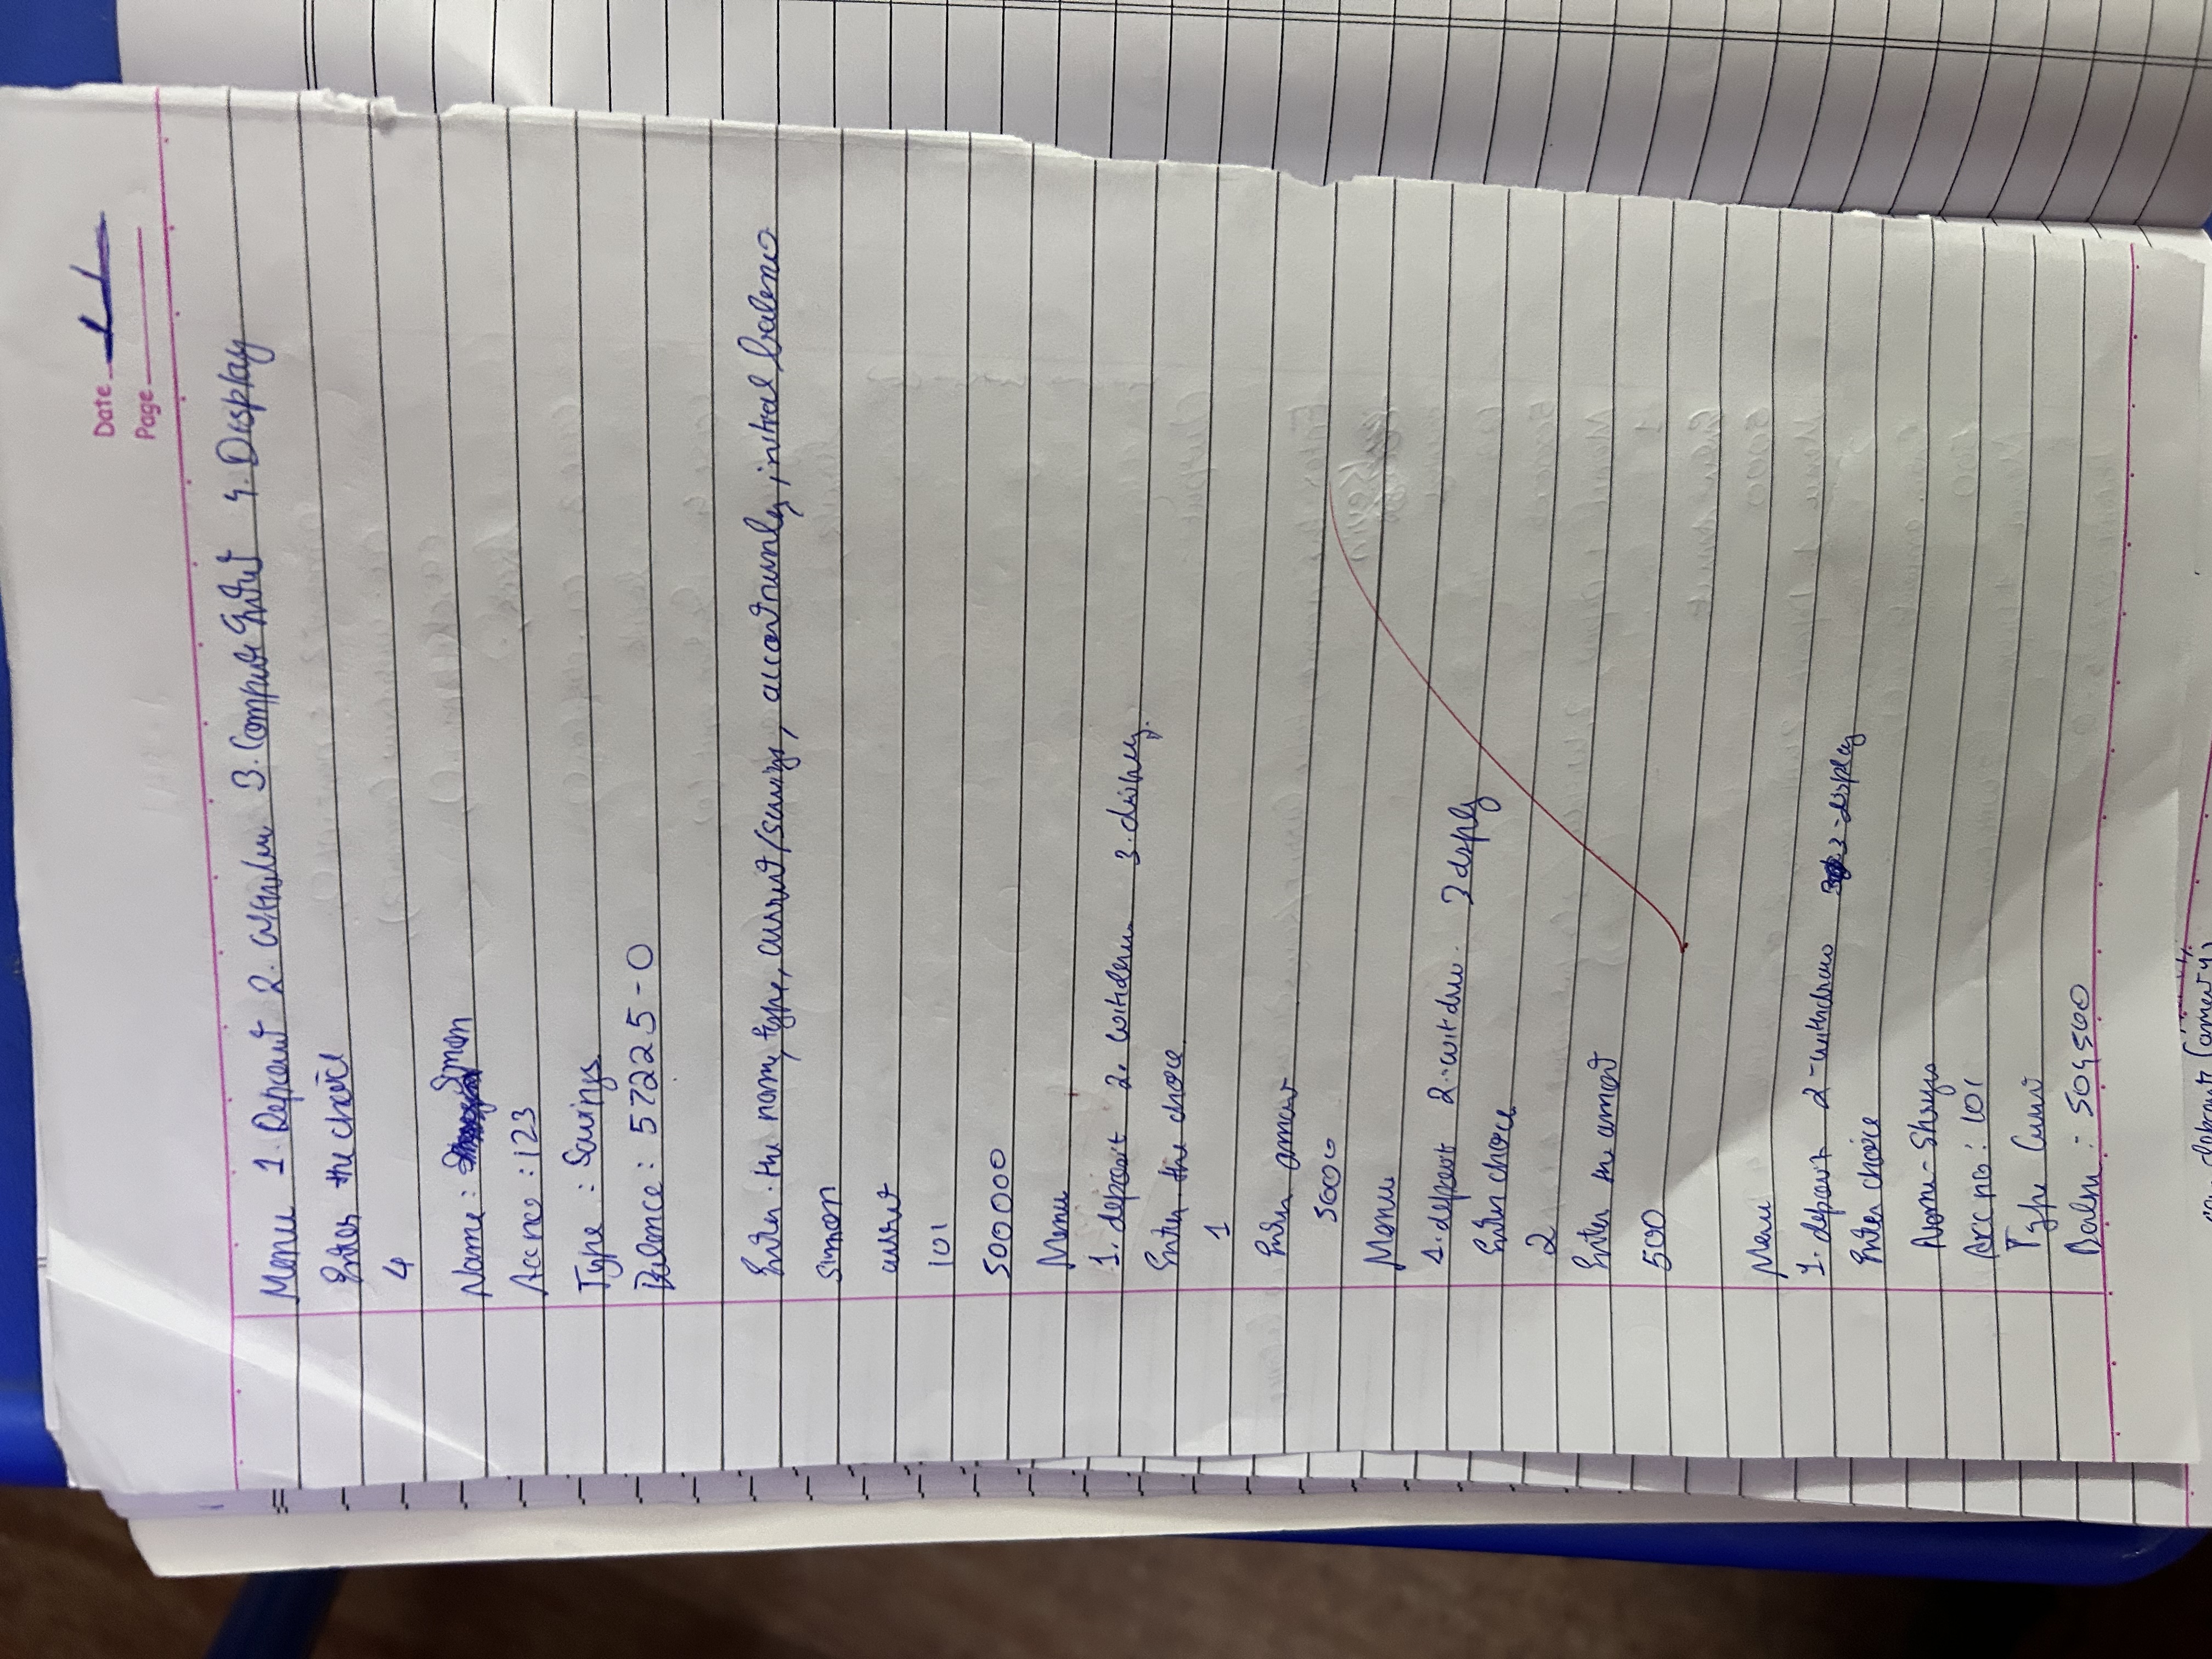 Date
Page
Menu 1. Deposit 2. Withdraw 3. Compute Intrst 4. Display
Enter the choice
4
Name : Simon
Acc no : 123
Type : Savings
Balance : 57225-0
Enter the name, type, current/savings, account number, initial balance
simon
current
101
500000
Menu
1. deposit 2. withdraw 3. display
Enter the choice
1
Enter amount
5000
Menu
1. deposit 2. withdraw 3 disply
Enter choice
2
Enter the amount
500
Menu
1. deposit 2-withdraw 3-display
Enter choice
Name - Shryas
Acc no : 101
Type Current
Balan : 504500